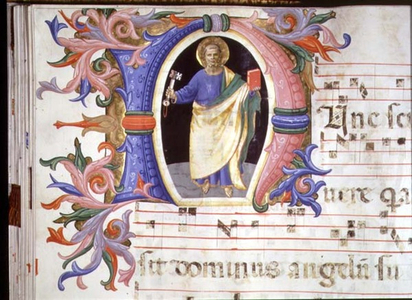 NUnc sc
uere q
sit dominus angelū su